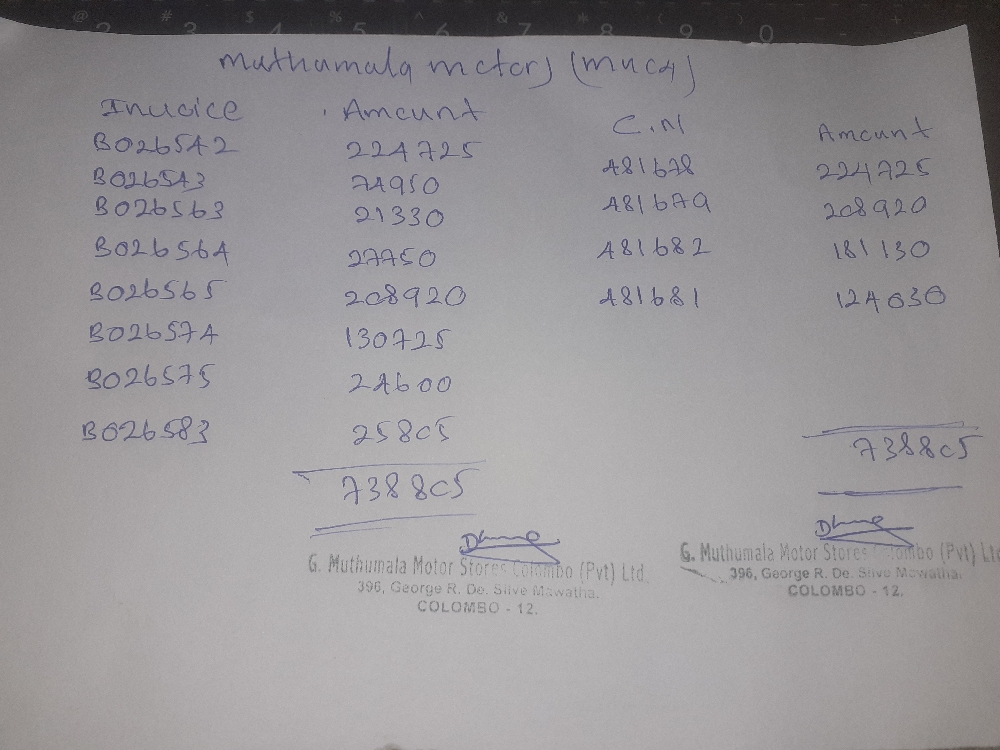 @ # $ % ^ & * ( )
2 3 4 5 6 7 8 9 0
muthumala motors (muc4)
Invoice Amount C.N Amount
B026542 224725 A81678 224725
B026543 74950 A81679 208920
B026563 21330 A81682 181130
B026564 27750 A81681 124030
B026565 208920
B026574 130725
B026575 24600
B026583 25805
738805 738805
G. Muthumala Motor Stores Colombo (Pvt) Ltd.
396, George R. De. Silve Mawatha.
COLOMBO - 12.
G. Muthumala Motor Stores Colombo (Pvt) Ltd
396, George R. De. Silve Mawatha.
COLOMBO - 12.